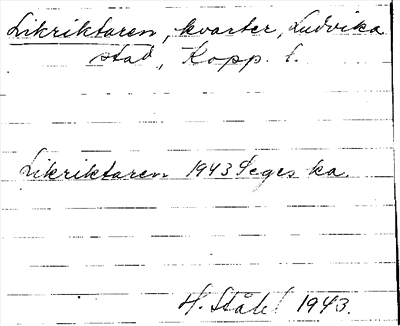 Likriktaren, kvarter, Ludvika
stad, Kopp. l.
Likriktaren 1943 Feges ka.
H. Ståhl 1943.